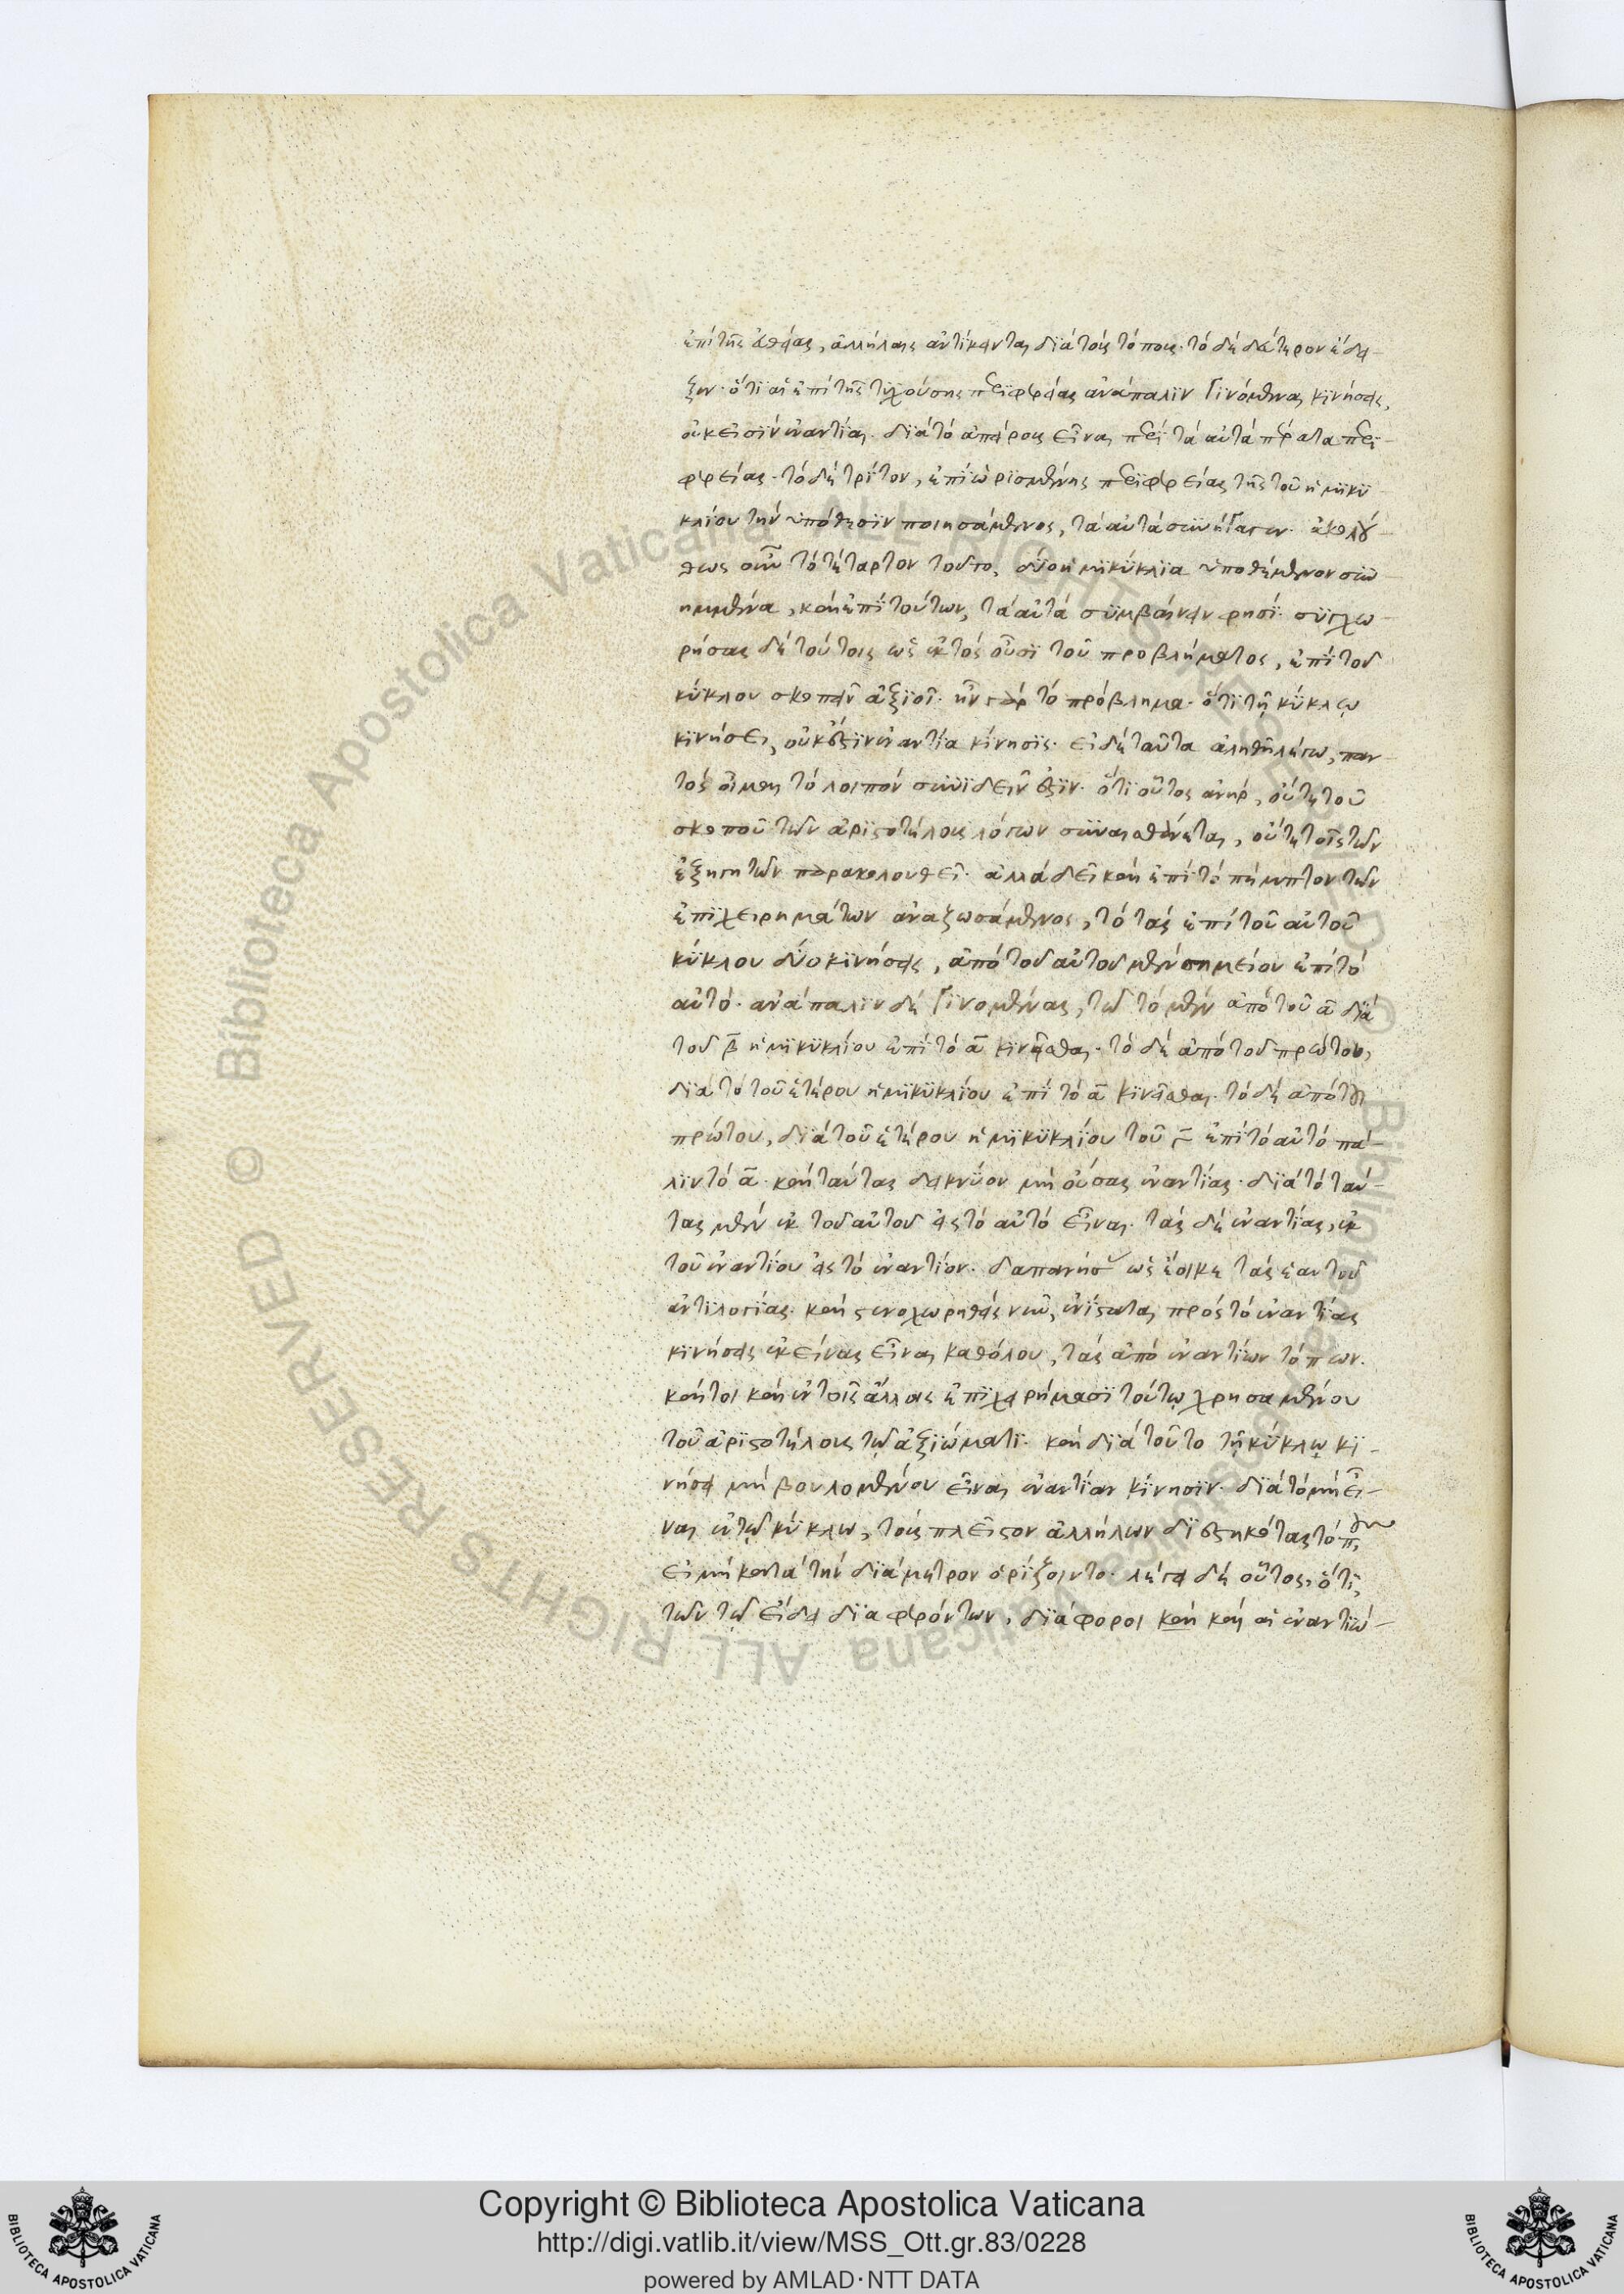 ἐπὶ τῆς εὐθείας, ἀλλήλαις ἀντίκεινται διὰ τοὺς τόπους· τὸ δὲ δεύτερον ἔδει-
ξεν· ὅτι αἱ ἐπὶ τῆς τυχούσης περιφερείας ἀνάπαλιν γινόμεναι κινήσεις,
οὐκ εἰσὶν ἐναντίαι· διὰ τὸ ἀπείρους εἶναι περὶ τὰ αὐτὰ πέρατα περι-
φερείας· τὸ δὲ τρίτον, ἐπὶ ὡρισμένης περιφερείας τῆς τοῦ ἡμικυ-
κλίου τὴν ὑπόθεσιν ποιησάμενος, τὰ αὐτὰ συνήγαγεν· ἀκολού-
θως οὖν τὸ τέταρτον τοῦτο, δύο ἡμικύκλια ὑποθέμενον συν-
ημμένα, καὶ ἐπὶ τούτων, τὰ αὐτὰ συμβαίνειν φησί· συγχω-
ρήσας δὲ τούτοις ὡς ἐκτὸς οὖσι τοῦ προβλήματος, ἐπὶ τοῦ
κύκλου σκοπεῖν ἀξιοῖ· ἦν γὰρ τὸ πρόβλημα· ὅτι τῇ κύκλῳ
κινήσει, οὐκ ἔστιν ἐναντία κίνησις· εἰ δὲ ταῦτα ἀληθῆ λέγω, παν-
τὸς οἶμαι τὸ λοιπὸν συνιδεῖν ἐστιν· ὅτι οὗτος ἀνὴρ, οὔτε τοῦ
σκοποῦ τῶν ἀριστοτέλους λόγων συναισθάνεται, οὔτε τοῖς τῶν
ἐξηγητῶν παρακολουθεῖ· ἀλλὰ δεῖ καὶ ἐπὶ τὸ πέμπτον τῶν
ἐπιχειρημάτων ἀναζωσάμενος, τὸ τὰς ἐπὶ τοῦ αὐτοῦ
κύκλου δύο κινήσεις, ἀπὸ τοῦ αὐτοῦ μὲν σημείου ἐπὶ τὸ
αὐτὸ· ἀνάπαλιν δὲ γινομένας, τῷ τὸ μὲν ἀπὸ τοῦ α διὰ
τοῦ β ἡμικυκλίου ἐπὶ τὸ α κινεῖσθαι· τὸ δὲ ἀπὸ τοῦ πρώτου,
διὰ τὸ τοῦ ἑτέρου ἡμικυκλίου ἐπὶ τὸ α κινεῖσθαι· τὸ δὲ ἀπὸ τοῦ
πρώτου, διὰ τοῦ ἑτέρου ἡμικυκλίου τοῦ γ ἐπὶ τὸ αὐτὸ πά-
λιν τὸ α· καὶ ταύτας δεικνύον μὴ οὔσας ἐναντίας· διὰ τὸ ταύ-
τας μὲν ἐκ τοῦ αὐτοῦ εἰς τὸ αὐτὸ εἶναι· τὰς δὲ ἐναντίας, ἐκ
τοῦ ἐναντίου εἰς τὸ ἐναντίον· ὡς ἔοικε τὰς ἑαυτοῦ
ἀντιλογίας· καὶ στενοχωρηθεὶς νῦν, ἐνίσταται πρὸς τὸ ἐναντίας
κινήσεις ἐκείνας εἶναι καθόλου, τὰς ἀπὸ ἐναντίων τόπων·
καίτοι καὶ ἐν τοῖς ἄλλοις ἐπιχειρήμασι τούτῳ χρησαμένου
τοῦ ἀριστοτέλους τῷ ἀξιώματι· καὶ διὰ τοῦτο τῇ κύκλῳ κι-
νήσει μὴ βουλομένου εἶναι ἐναντίαν κίνησιν· διὰ τὸ μὴ εἶ-
ναι ἐν τῷ κύκλῳ, τοὺς πλεῖστον ἀλλήλων διεστηκότας τόπους,
εἰ μὴ κατὰ τὴν διάμετρον ὁρίζοιντο· λέγει δὲ οὗτος, ὅτι,
τῶν τῷ εἴδει διαφερόντων, διάφοροι καὶ καὶ αἱ ἐναντιώ-
Copyright © Biblioteca Apostolica Vaticana
http://digi.vatlib.it/view/MSS_Ott.gr.83/0228
powered by AMLAD·NTT DATA